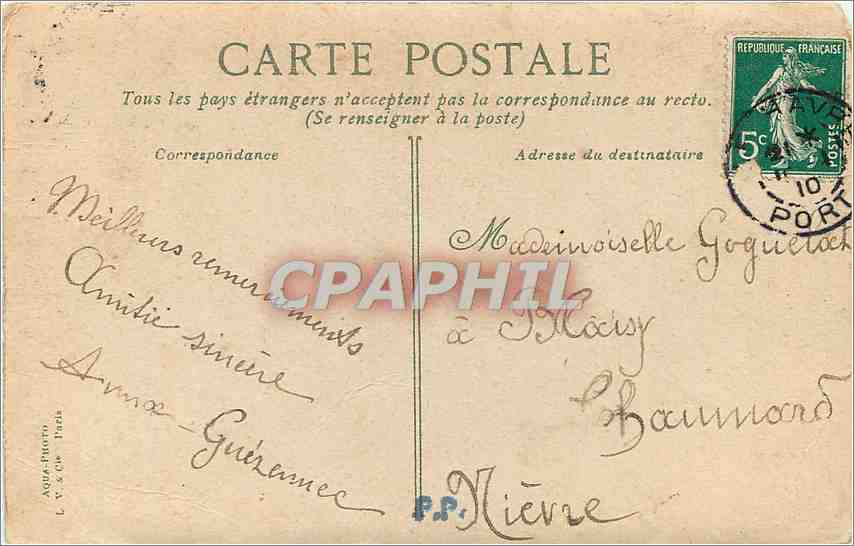 CARTE POSTALE
Tous les pays étrangers n'acceptent pas la correspondance au recto.
(Se renseigner à la poste)
Correspondance
Adresse du destinataire
REPUBLIQUE FRANÇAISE
5c
POSTES
10
PORT
Meilleurs remerciements
Amitié sincère
Anna Guézennec
Mademoiselle
à Blaisy
Chaumard
Nièvre
P.P.
AQUA-PHOTO
L. V. & Cie Paris
CPAPHIL